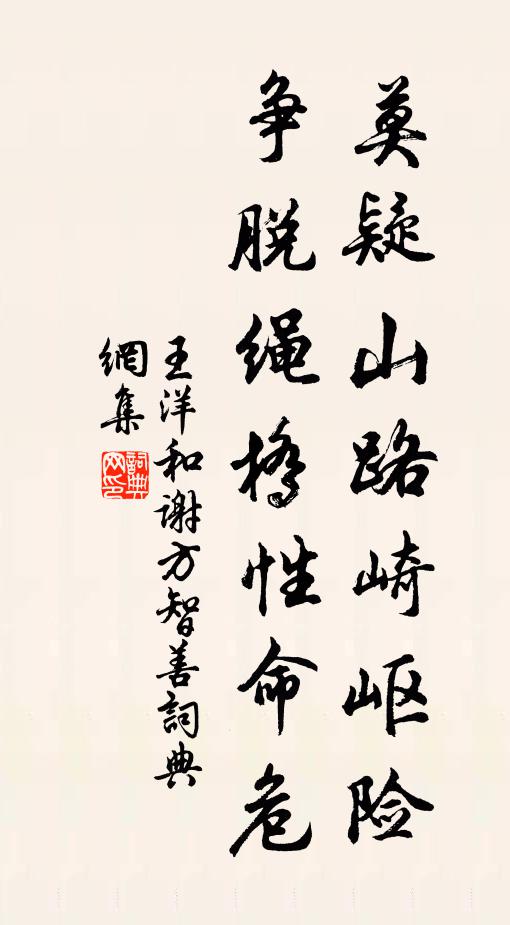 莫疑山路崎岖险
争脱绳桥性命危
王洋和谢方智善詞典
網集
詞典
网印